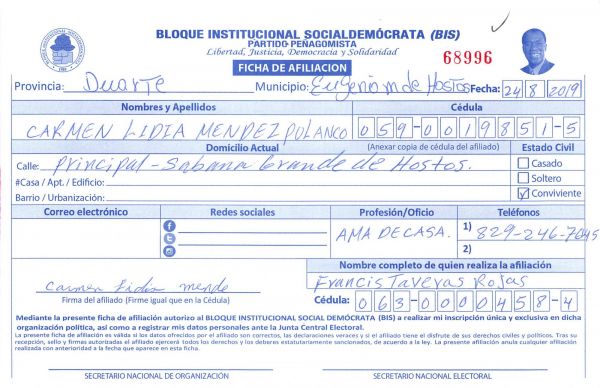 BLOQUE INSTITUCIONAL SOCIALDEMÓCRATA (BIS)
PARTIDO PEÑAGOMISTA
Libertad, Justicia, Democracia y Solidaridad
68996
FICHA DE AFILIACION
Provincia: Duarte Municipio: Eugenio M de Hostos Fecha: 24 8 2019
Nombres y Apellidos Cédula
CARMEN LIDIA MENDEZ POLANCO 059-0019851-5
Domicilio Actual (Anexar copia de cédula del afiliado) Estado Civil
Calle: Principal - Sabana Grande de Hostos. Casado
#Casa / Apt. / Edificio: Soltero
Barrio / Urbanización: Conviviente
Correo electrónico Redes sociales Profesión/Oficio Teléfonos
AMA DE CASA. 1) 829-246-7045
2)
Nombre completo de quien realiza la afiliación
Carmen Lidia mende Francis Taveras Rojas
Firma del afiliado (Firme igual que en la Cédula) Cédula: 063-0000458-4
Mediante la presente ficha de afiliación autorizo al BLOQUE INSTITUCIONAL SOCIAL DEMÓCRATA (BIS) a realizar mi inscripción única y exclusiva en dicha
organización política, así como a registrar mis datos personales ante la Junta Central Electoral.
La presente ficha de afiliación es válida si los datos ofrecidos por el afiliado son correctos, las declaraciones veraces y si el afiliado tiene el disfrute de sus derechos civiles y políticos. Tras su
recepción, sello y firmas autorizadas el afiliado ejercerá todos los derechos y los deberes estatutariamente sancionados, de acuerdo a la ley. La presente afiliación anula cualquier afiliación
realizada con anterioridad a la fecha que aparece en esta ficha.
SECRETARIO NACIONAL DE ORGANIZACIÓN SECRETARIO NACIONAL ELECTORAL